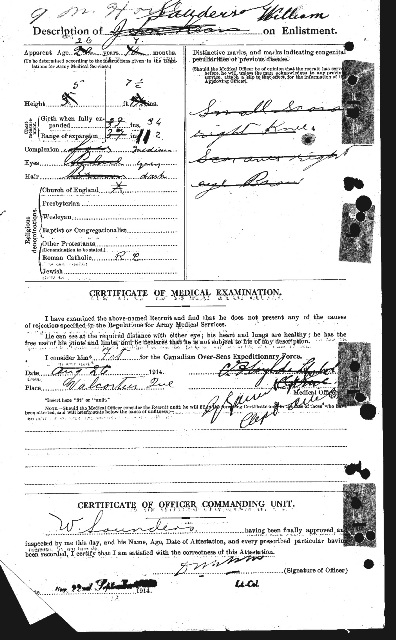 Saunders William
Description of on Enlistment.
Apparent Age years months.
(To be determined according to the instructions given in the Regulations for Army Medical Services.)
Distinctive marks, and marks indicating congenital peculiarities or previous disease.
(Should the Medical Officer be of opinion that the recruit has served before, he will, unless the man acknowledges to any previous service, attach a slip to that effect, for the information of the Approving Officer).
Height 5 ft. 7 ½ ins.
Girth when fully expanded 34 ins.
Range of expansion 2 ins.
Complexion medium
Eyes grey
Hair dark
Small Scar
right Knee
Scar over right
eye Brow
Religious denominations.
Church of England X
Presbyterian
Wesleyan
Baptist or Congregationalist
Other Protestants
(Denomination to be stated.)
Roman Catholic R C
Jewish
CERTIFICATE OF MEDICAL EXAMINATION.
I have examined the above-named Recruit and find that he does not present any of the causes of rejection specified in the Regulations for Army Medical Services.
He can see at the required distance with either eye; his heart and lungs are healthy; he has the free use of his joints and limbs, and he declares that he is not subject to fits of any description.
I consider him* Fit for the Canadian Over-Seas Expeditionary Force.
Date Aug 26 1914.
Place Valcartier Que
Medical Officer.
*Insert here "fit" or "unfit."
NOTE.—Should the Medical Officer consider the Recruit unfit, he will
CERTIFICATE OF OFFICER COMMANDING UNIT.
W. Saunders having been finally approved and
inspected by me this day, and his Name, Age, Date of Attestation, and every prescribed particular having
been recorded, I certify that I am satisfied with the correctness of this Attestation.
Lt-Col.
(Signature of Officer)
22nd September 1914.